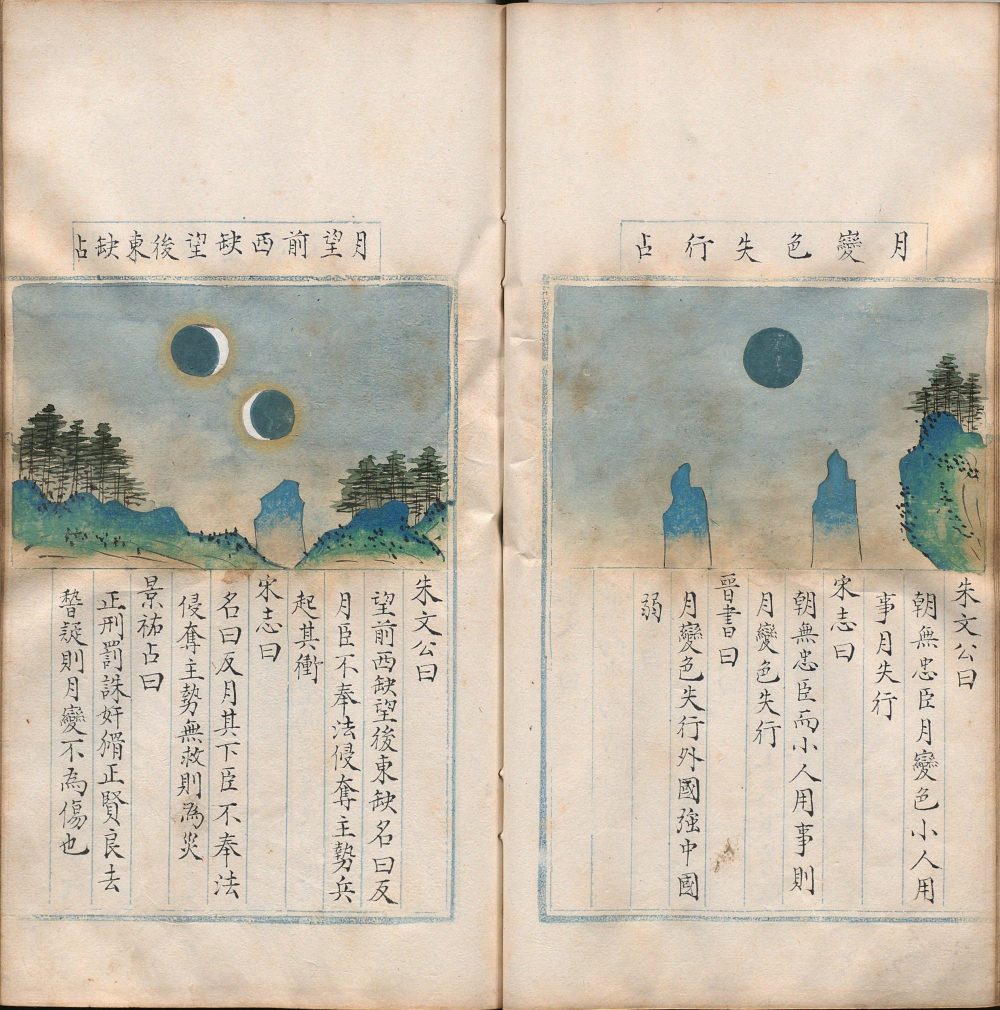 月變色失行占
朱文公曰
朝無忠臣月變色小人用
事月失行
宋志曰
朝無忠臣而小人用事則
月變色失行
晉書曰
月變色失行外國強中國
弱
月望前西缺望後東缺占
朱文公曰
望前西缺望後東缺名曰反
月臣不奉法侵奪主勢兵
起其衝
宋志曰
名曰反月其下臣不奉法
侵奪主勢無救則為災
景祐占曰
正刑罰誅奸猾正賢良去
讒疑則月變不為傷也